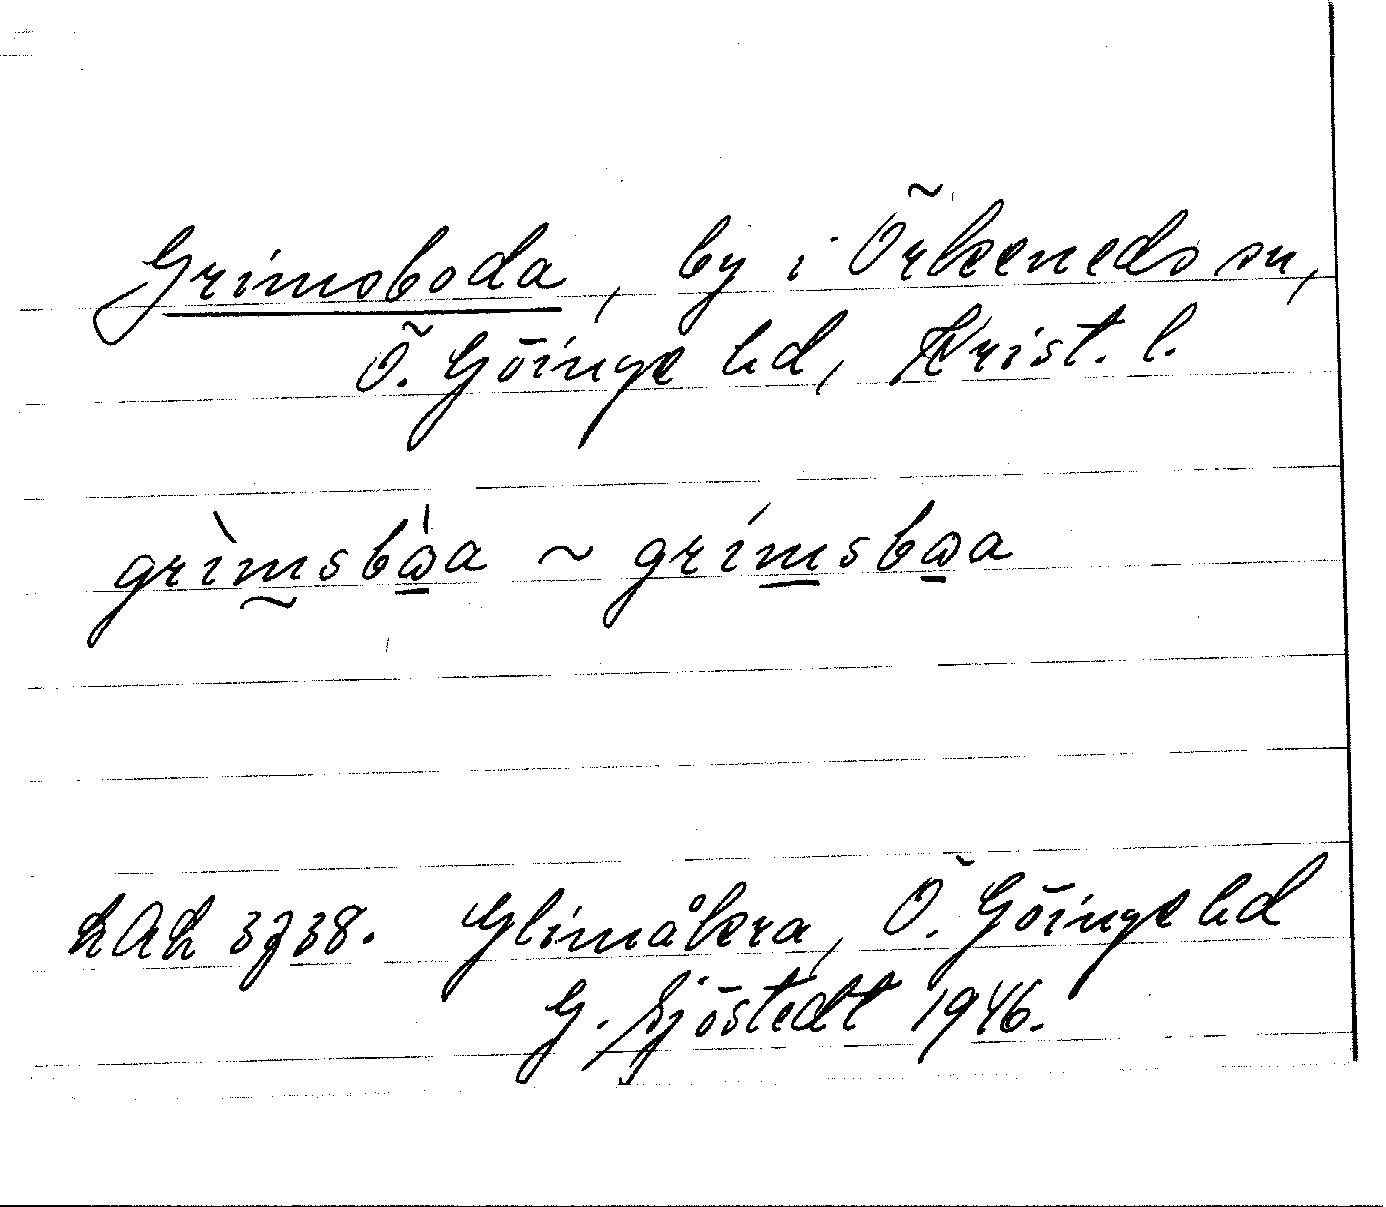 Grimsboda, by i Örkeneds sn,
Ö. Göinge hd, Krist. l.
grìm̰sbὼ̲a ~ grím̲sbω̲a
LAL 3738. Glimåkra, Ö. Göinge hd
G. Sjöstedt 1946.